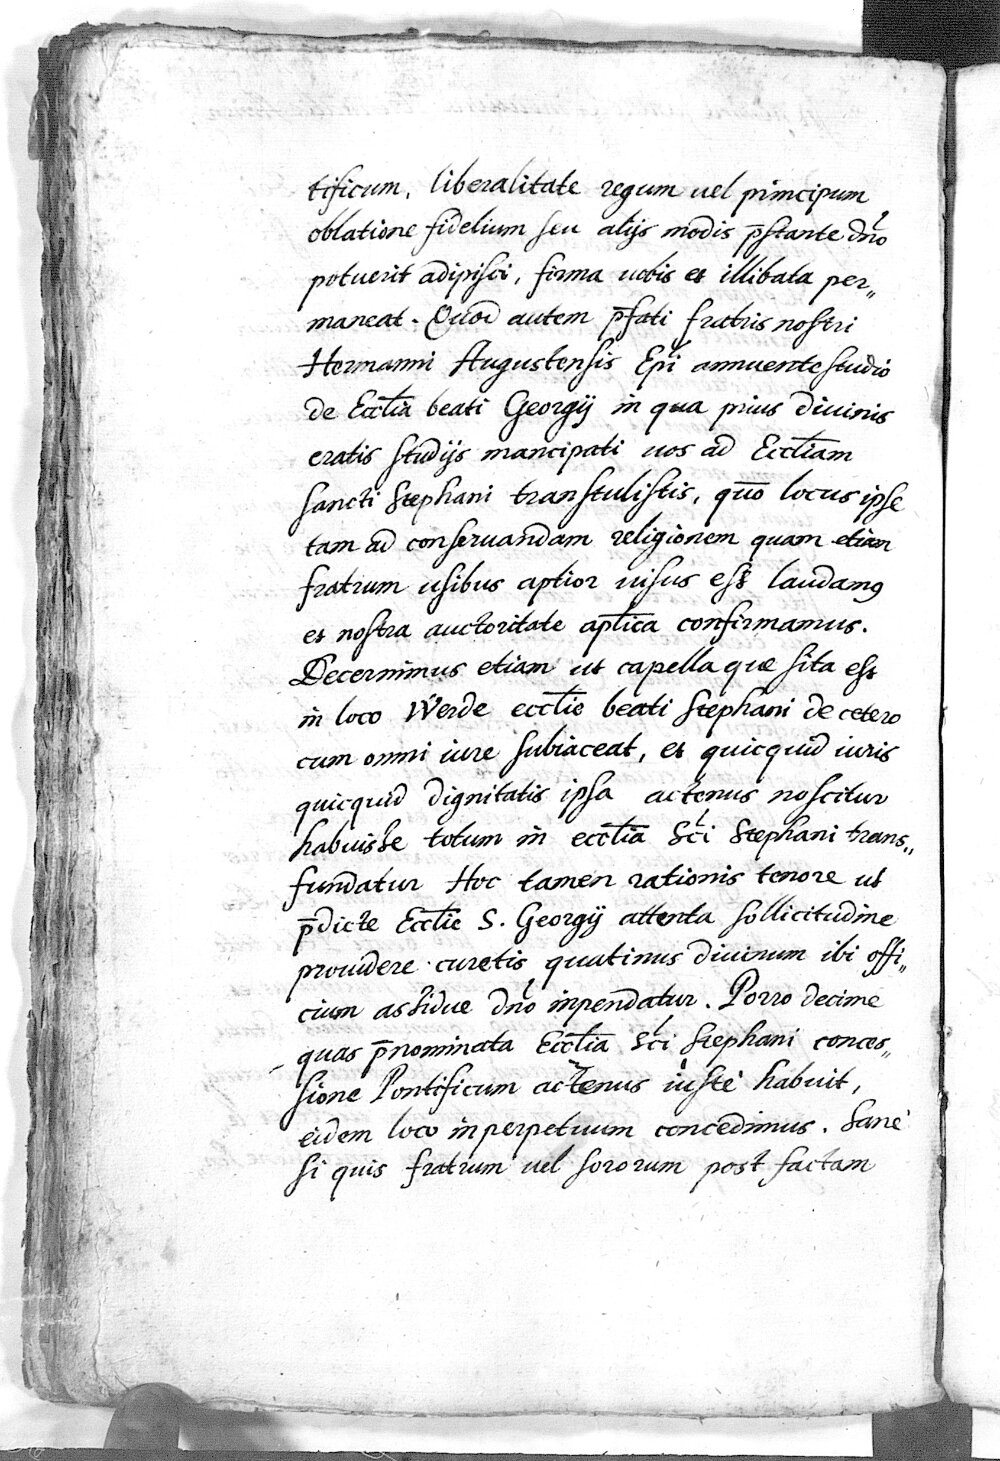 tificum, liberalitate regum uel principum
oblatione fidelium seu alijs modis p̄stante dn̄o
potuerit adipisci, firma uobis et illibata per„
maneat. Quod autem p̄fati fratris nostri
Hermanni Augustensis Ep̄i annuente studio
de Eccl̄ia beati Georgij in qua prius diuinis
eratis studijs mancipati uos ad Eccl̄iam
sancti Stephani transtulistis, quō locus ipse
tam ad conseruandam religionem quam etiam
fratrum usibus aptior uisus est laudamꝰ
et nostra auctoritate apl̄ica confirmamus.
Decernimus etiam ut capella quæ sita est
in loco Werde eccl̄ie beati Stephani de cetero
cum omni iure subiaceat, et quicquid iuris
quicquid dignitatis ipsa actenus noscitur
habuisse totum in eccl̄ia Sc̄i Stephani trans„
fundatur Hoc tamen rationis tenore ut
p̄dicte Eccl̄ie S. Georgij attenta sollicitudine
prouidere curetis quatinus diuinum ibi offi„
cium assidue dn̄o inpendatur. Porro decime
quas p̄nominata Eccl̄ia Sc̄i Stephani conces„
sione Pontificum actenus iustè habuit,
eidem loco in perpetuum concedimus. Sanè
si quis fratrum uel sororum post factam